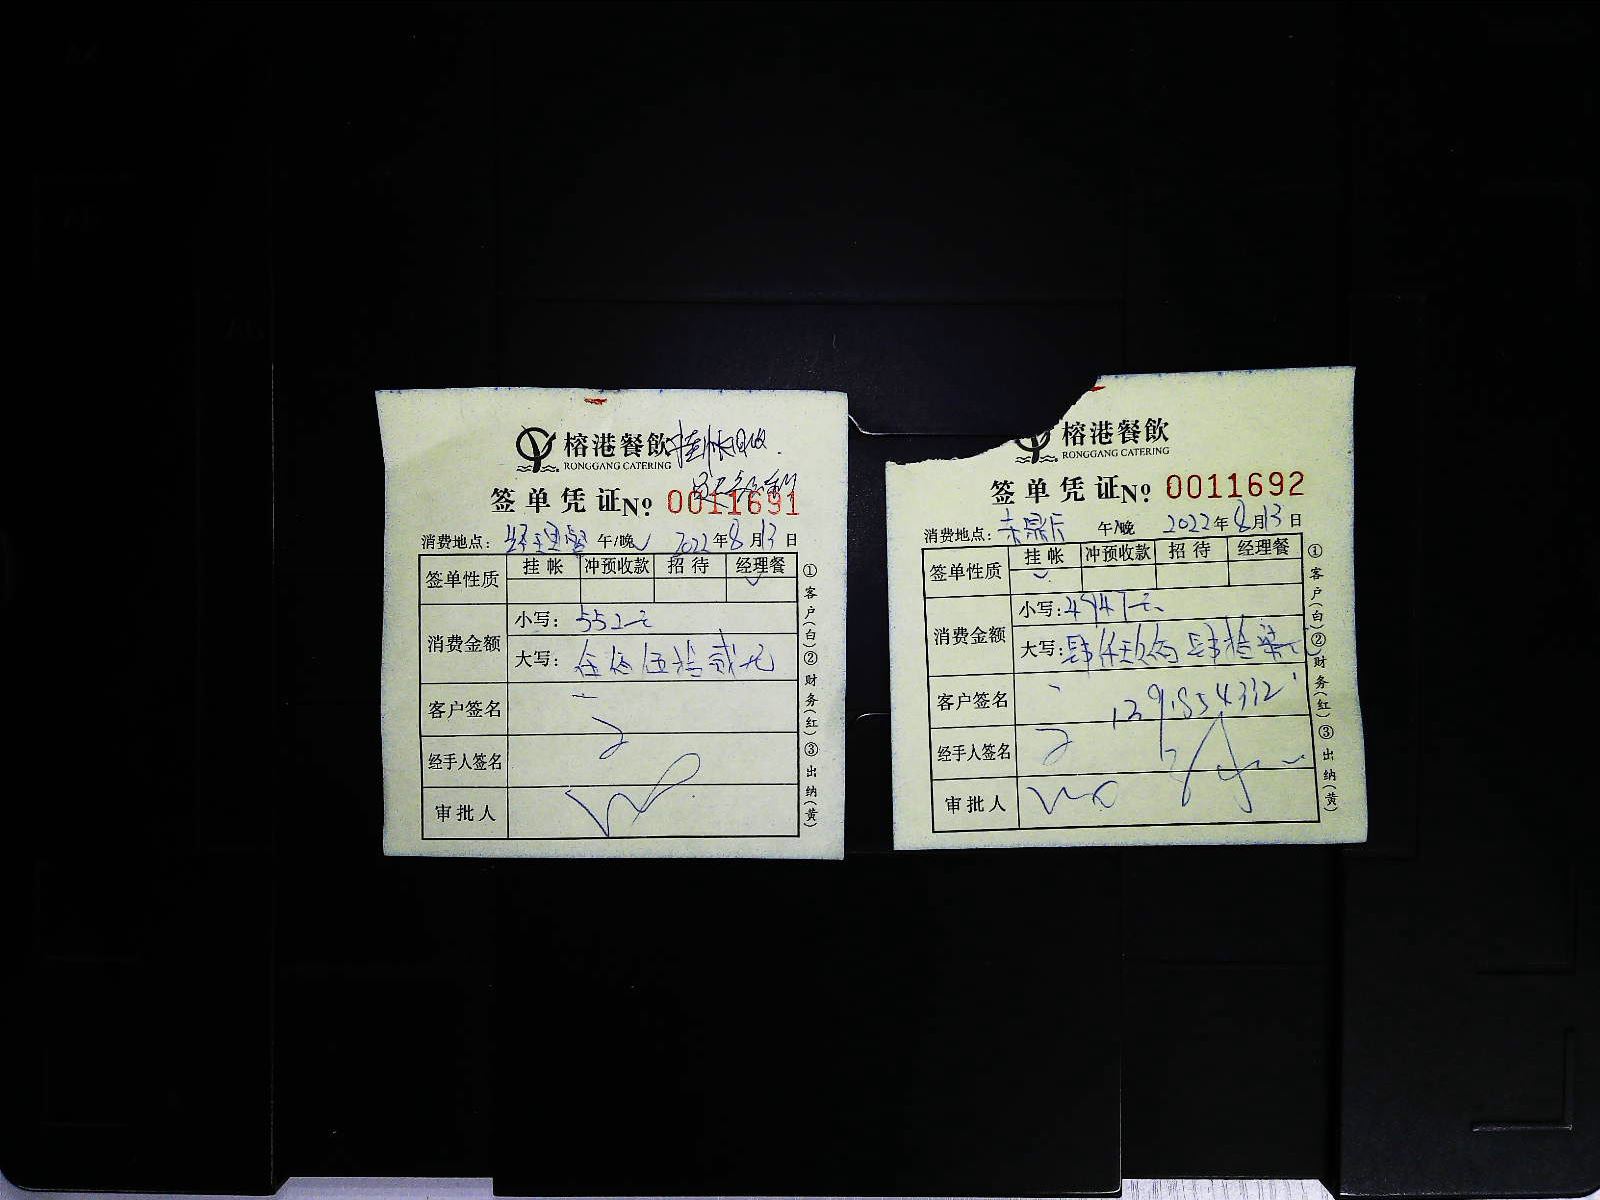 榕港餐飲
RONGGANG CATERING
挂帐
签单凭证 No 0011691
消费地点：经理餐 午/晚 2022年8月13日
签单性质 挂帐 冲预收款 招待 经理餐
消费金额 小写：552元
大写：伍佰伍拾贰元
客户签名
经手人签名
审批人
①客户(白)②财务(红)③出纳(黄)
榕港餐飲
RONGGANG CATERING
签单凭证 No 0011692
消费地点： 午/晚 2022年8月13日
签单性质 挂帐 冲预收款 招待 经理餐
消费金额 小写：4947元
大写：肆仟玖佰肆拾柒元
客户签名
经手人签名
审批人
①客户(白)②财务(红)③出纳(黄)